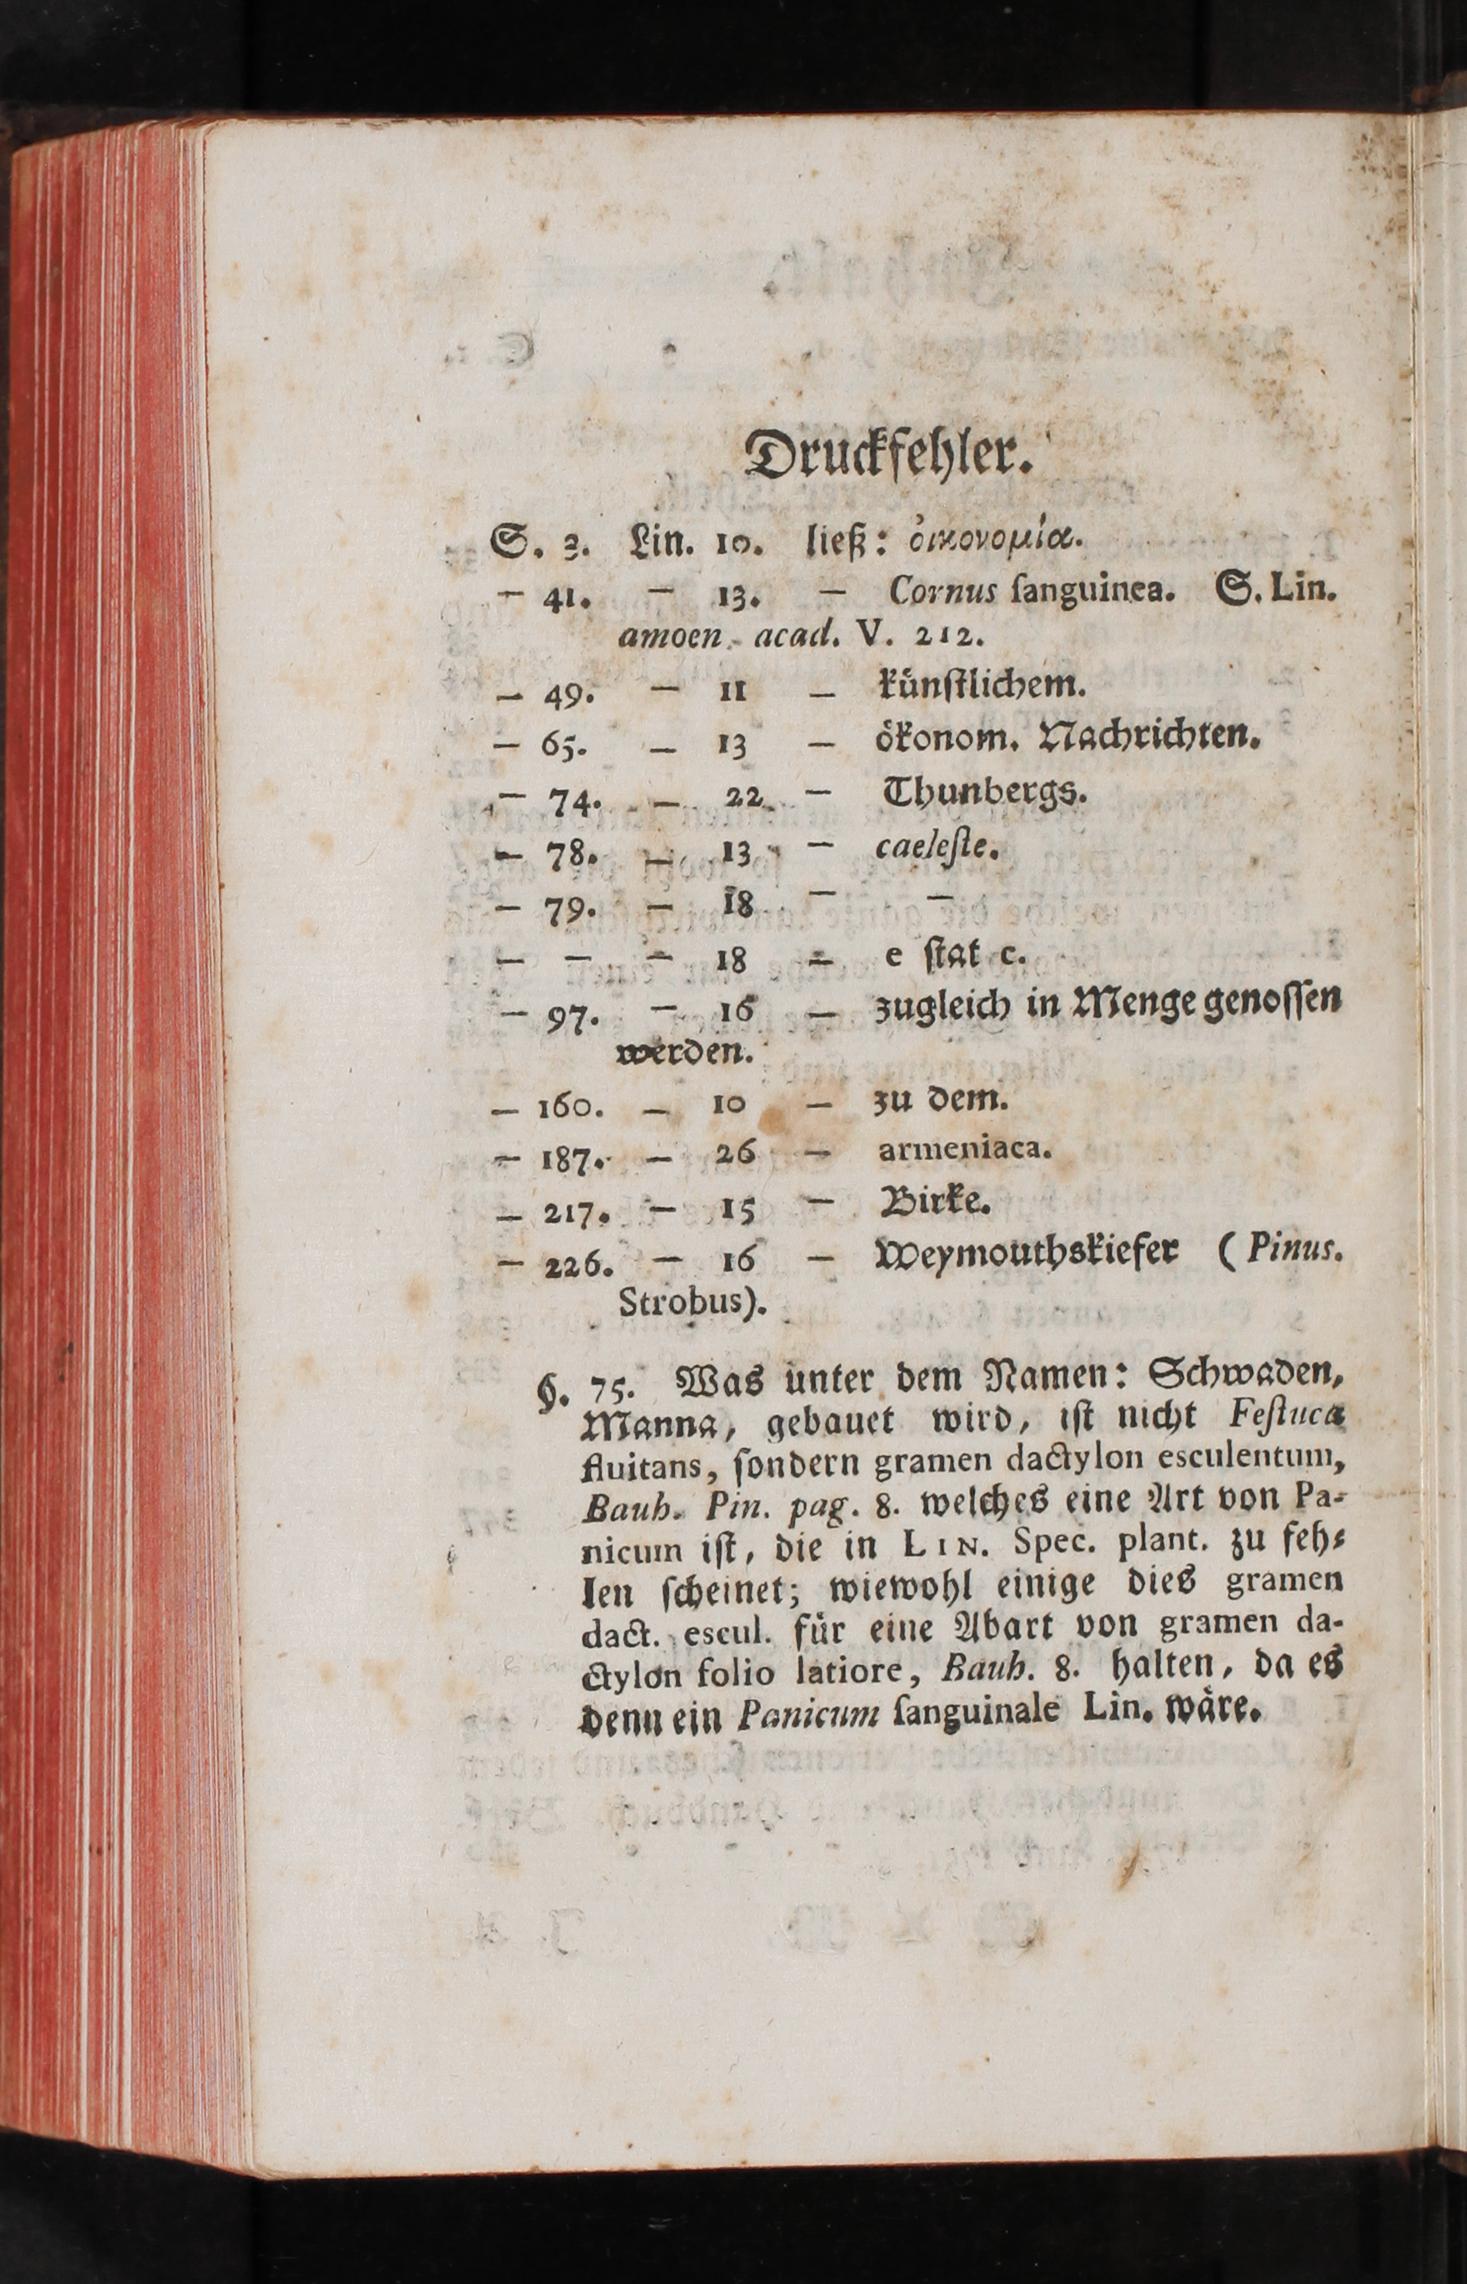 Druckfehler.
S. 3. Lin. 10. ließ: ὀικονομία.
— 41. — 13. — Cornus ſanguinea. S. Lin.
amoen. acad. V. 212.
— 49. — 11 — kuͤnſtlichem.
— 65. — 13 — oͤkonom. Nachrichten.
— 74. — 22 — Thunbergs.
— 78. — 13 — caeleſte.
— 79. — 18 — —
— — — 18 — e ſtat c.
— 97. — 16 — zugleich in Menge genoſſen
werden.
— 160. — 10 — zu dem.
— 187. — 26 — armeniaca.
— 217. — 15 — Birke.
— 226. — 16 — Weymouthskiefer (Pinus.
Strobus).
§. 75. Was unter dem Namen: Schwaden,
Manna, gebauet wird, iſt nicht Feſtuca
fluitans, ſondern gramen dactylon esculentum,
Bauh. Pin. pag. 8. welches eine Art von Pa-
nicum iſt, die in LIN. Spec. plant. zu feh⸗
len ſcheinet; wiewohl einige dies gramen
dact. escul. fuͤr eine Abart von gramen da-
ctylon folio latiore, Bauh. 8. halten, da es
denn ein Panicum ſanguinale Lin. waͤre.